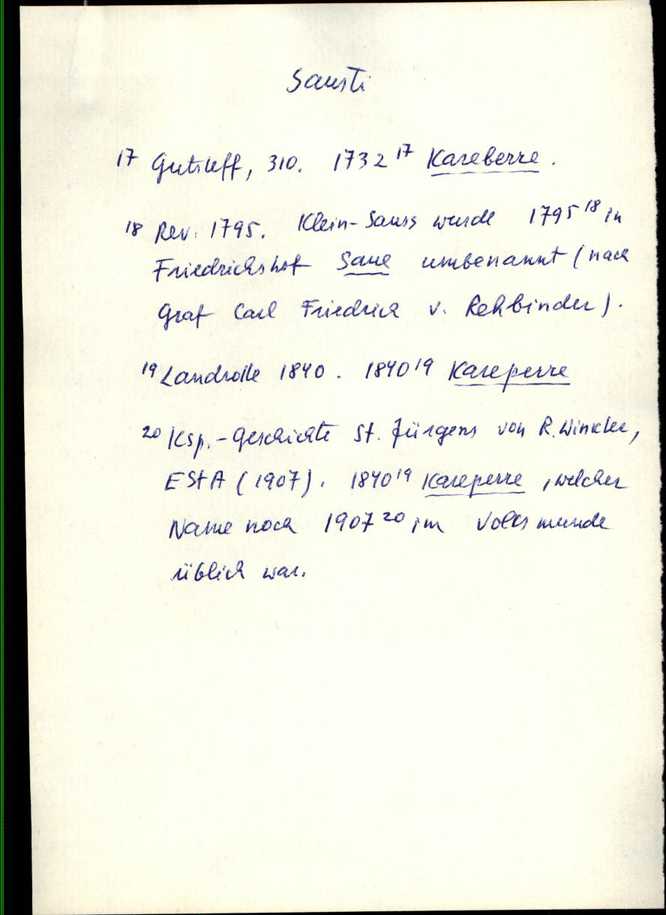 Sausti
17 Gutsleff, 310. 1732 17 Kareberre.
18 Rev. 1795. Klein-Sauss wurde 1795 18 in
Friedrichshof Saue umbenannt (nach
Graf Carl Friedrich v. Rehbinder).
19 Landrolle 1840. 1840 19 Kareperre
20 Ksp.-Geschichte St. Jürgens von R. Winkler,
EStA (1907). 1840 19 Kareperre, welcher
Name noch 1907 20 im Volksmunde
üblich war.